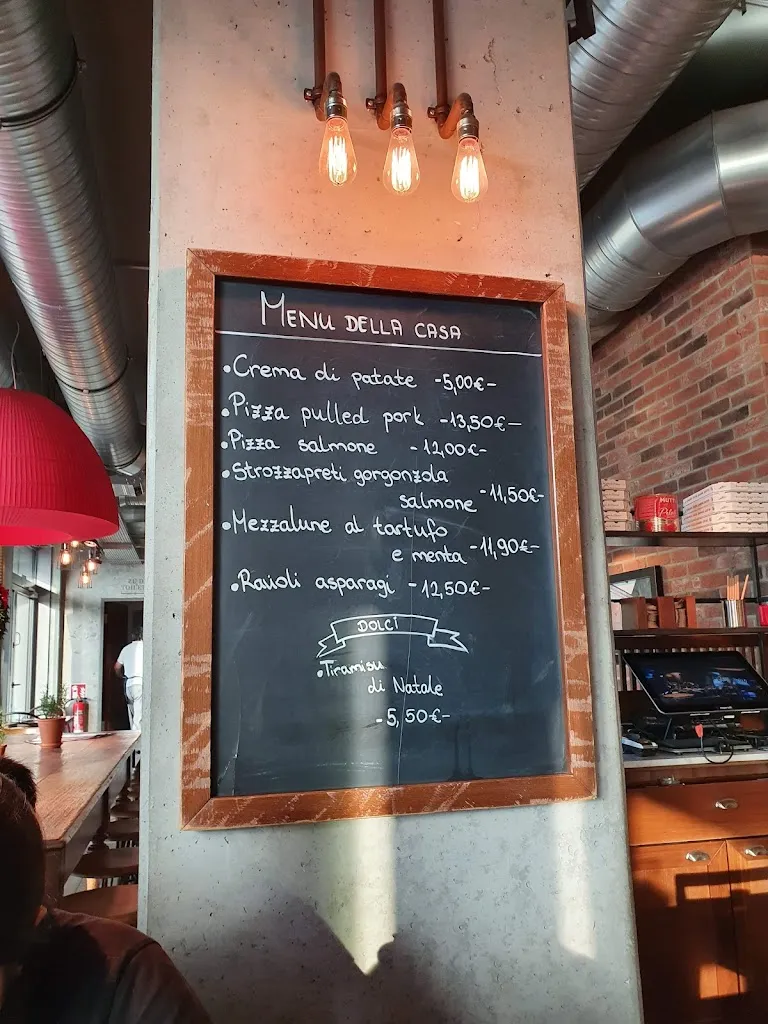 MENU DELLA CASA
•Crema di patate -5,00€-
•Pizza pulled pork -13,50€-
•Pizza salmone -12,00€-
•Strozzapreti gorgonzola
salmone -11,50€-
•Mezzalune al tartufo
e menta -11,90€-
•Ravioli asparagi -12,50€-
DOLCI
•Tiramisu
di Natale
-5,50€-
MUTTI